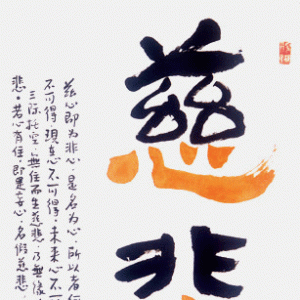 慈
非
慈心即为非心，是名为心。所以者何
不可得，現在心不可得，未来心不可
三际托空，無住而生慈悲，乃無缘
悲。若心有住，即是妄心，名假慈悲